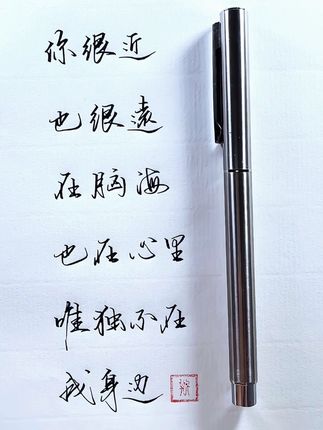 你很近
也很遠
在脑海
也在心里
唯独不在
我身边